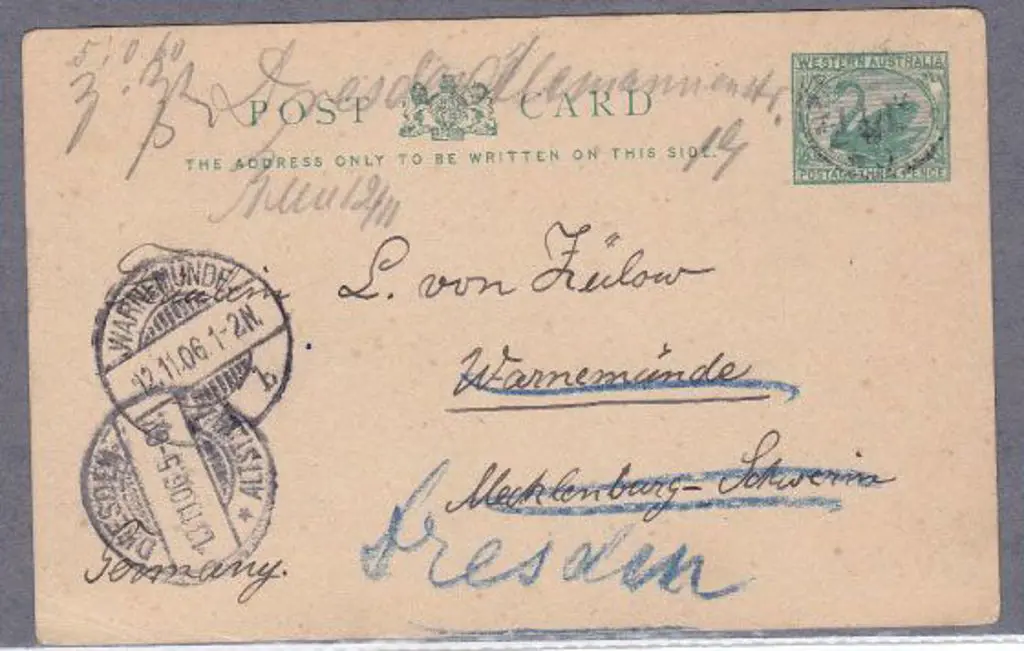 Dresden Alemannenstr.
POST CARD
19
THE ADDRESS ONLY TO BE WRITTEN ON THIS SIDE.
12/11
WESTERN AUSTRALIA
POSTAGE PENCE
L. von Zülow
Warnemünde
Mecklenburg-Schwerin
Dresden
Germany.
WARNEMÜNDE
12.11.06.1-2N.
b
DRESDEN
ALTST.
13.11.06.5-